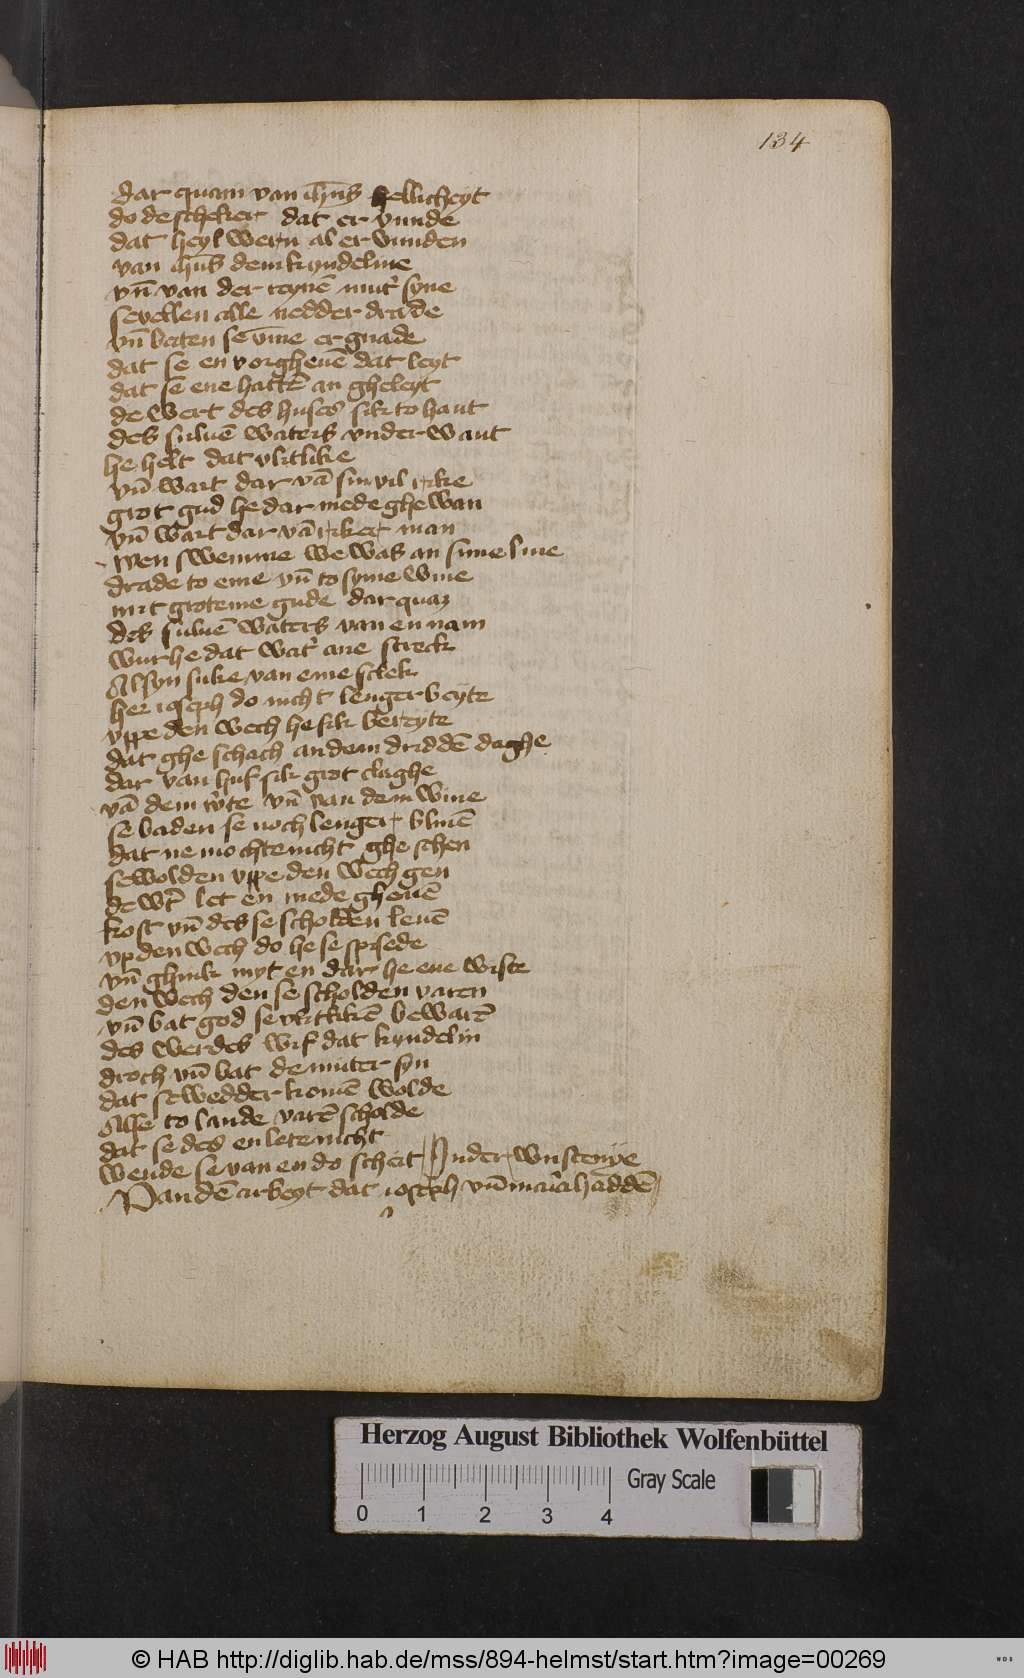 134
dar quam van ih̄us hellicheyt
do de scheker dat er vunde
dat heyl wern al er vunden
van ih̄us dem kyndeline
vn̄ van der reynē mut' syne
se vellen alle nedder drade
vn̄ beten se v̄me er gnade
dat se en vorgheuē dat leyt
dat se ene hattē an gheleyt
de wert des huses sik to hant
des suluē waters vnder want
he helt dat vlitlike
vn̄ wart dar vā sin vil rike
grot gud he dar mede ghewan
vn̄ wart dar vā riker man
wen swemme we was an sime liue
drade to eme vn̄ to syme wiue
mit groteme gude dar quam
des suluē waters van en nam
wur he dat wat' ane streck
Al syn suke van eme sclek
her ioseph do nicht lenger beyte
vppe den wech he sik bereyte
dat ghe schach an dem driddē daghe
dar van huf sik grot claghe
vā dem w'te vn̄ van dem wiue
se baden se noch lenger bliuē
dat ne mochte nicht ghe schen
se wolden vppe den wech gen
de w't let en mede gheuē
kost vn̄ des se scholden leuē
vp den wech do he se spisede
vn̄ ghink myt en dar he ene wiste
den wech den se scholden varen
vn̄ bat god se vlitlikē bewarē
des werdes wif dat kyndelin
droch vn̄ bat de muter syn
dat se wedder komē wolde
Alse to lande varē scholde
dat se des en lete nicht
wende se van en do scheit In der wustenye
Van dē arbeyt dat ioseph vn̄ mar'a haddē
Herzog August Bibliothek Wolfenbüttel
0 1 2 3 4
Gray Scale
© HAB http://diglib.hab.de/mss/894-helmst/start.htm?image=00269
HAB